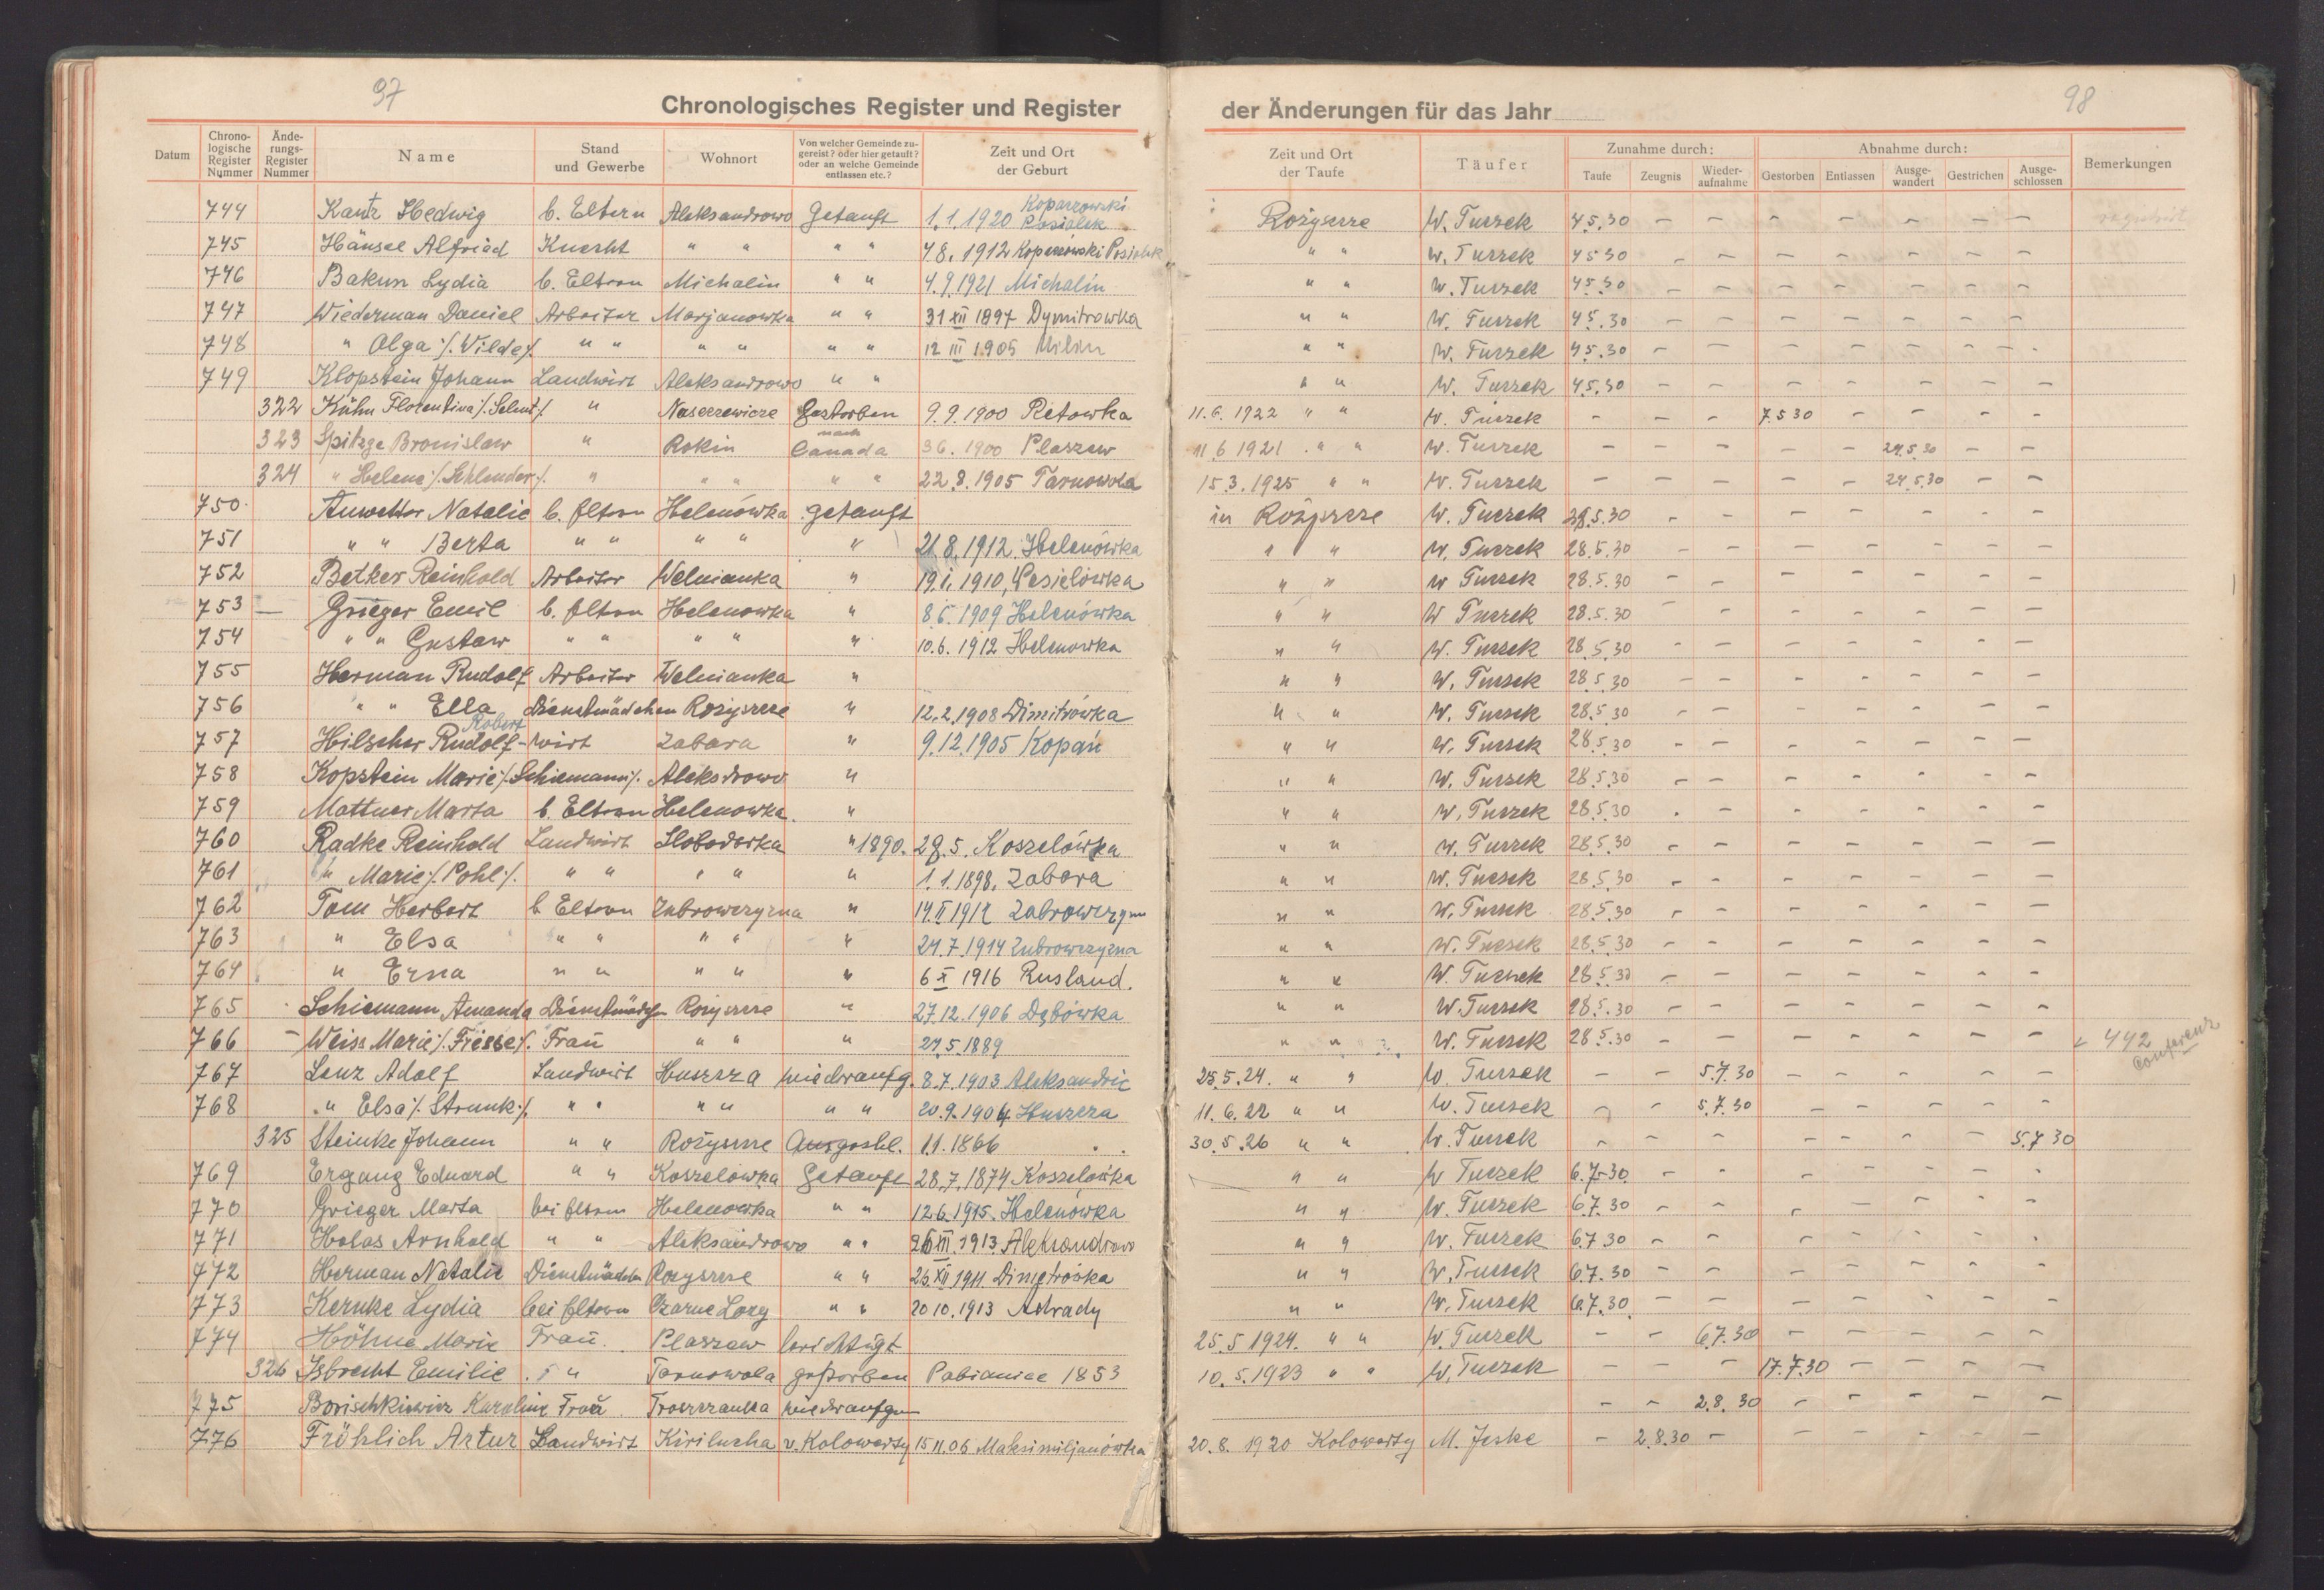 97
Chronologisches Register und Register
Datum | Chrono-logische Register Nummer | Ände-rungs-Register Nummer | Name | Stand und Gewerbe | Wohnort | Von welcher Gemeinde zu-gereist? oder hier getauft? oder an welche Gemeinde entlassen etc.? | Zeit und Ort der Geburt
744 Kantz Hedwig b. Eltern Aleksandrowo Getauft 1.1.1920 Koparzowski Posialek
745 Hänsel Alfried Knecht " " " " 4.8.1912 Koparzowski Posialek
746 Bakun Lydia b. Eltern Michalin " " 4.9.1921 Michalin
747 Wiederman Daniel Arbeiter Marjanowka " " 31 XII 1897 Dymitrowka
748 " Olga /. Wilde/. " " " " " " 12 III 1905 Milin
749 Klopstein Johann Landwirt Aleksandrowo " "
322 Kühn Florentina /. Selent/. " Naseczewicze Gestorben 9.9.1900 Retowka
323 Spitzge Bronislaw " Rokin nach Canada 3 6. 1900 Plaszew
324 " Helene /. Schlender /. " " " " " 22.8.1905 Tarnowola
750. Natalie b. Eltern Helenówka getauft
751 " " Berta " " " " " 21.8.1912. Helenówka
752 Betker Reinhold Arbeiter Welnianka " 19.1.1910, Wesielówka
753 — Grieger Emil b. Eltern Helenowka " 8.6.1909 Helenówka
754 " " Gustaw " " " " " 10.6.1912 Helenowka
755 Herman Rudolf Arbeiter Welnianka "
756 " " Ella Dienstmädchen Rozyszcze " 12.2.1908 Dimitrówka
757 Hilscher Rudolf Robert - Wirt Zabara " 9.12.1905 Kopań
758 Kopstein Marie /. Schiemann /. Aleksdrowo "
759 Mattner Marta b. Eltern Helenowka. "
760 Radke Reinhold Landwirt Slobodorka " 1890. 28.5. Koszelówka
761 " Marie /. Pohl /. " " " " " 1.1.1898. Zabara
762 Tom Herbert b Eltern Zubrowczyzna " 14.II 1912
763 " Elsa " " " " " 24.7.1914 Zubrowczyzna
764 " Erna " " " " " 6 X 1916 Rusland.
765 Schiemann Amanda Dienstmädchen Rozyszcze " 27.12.1906 Dębówka
766 — Weiss Marie /. Friesse /. Frau " " " 27.5.1889
767 Lenz Adolf Landwirt Huszcza wiederaufg. 8.7.1903 Aleksandric
768 " Elsa /. Strunk /. " " " " " " 20.9.1904 Huszcza
325 Steinke Johann " " Rożyszcze Ausgeshl. 1.1.1866
769 Ergang Eduard " " Koszelówka Getauft 28.7.1874 Koszelówka
770 Grieger Marta bei Eltern Helenowka " " 12.6.1915. Helenowka
771 Holas Arnhold " " Aleksandrowo " " 26 XII. 1913. Aleksandrowo
772 Herman Natalie Dienstmädchen Rozyszcze " " 25 XII 1911. Dimetrówka
773 Kernke Lydia bei Eltern Czarne Lozy " " 20.10.1913 Antrady
774 Höhne Marie Frau. Plaszow berichtigt
326 Isbrecht Emilie " " Tarnowola gestorben Pabianice 1853
775 Borischkiewicz Karoline Frau. Troszczanka wiederaufgen
776 Fröhlich Artur Landwirt Kirilucha v. Kolowerty 15.11.06 Maksimiljanówka
98
der Änderungen für das Jahr
Zeit und Ort der Taufe | Täufer | Zunahme durch: Taufe | Zeugnis | Wieder-aufnahme | Abnahme durch: Gestorben | Entlassen | Ausge-wandert | Gestrichen | Ausge-schlossen | Bemerkungen
Rożyszcze W. Tuczek 4.5.30 – – – – – – – –
" " W. Tuczek 4 5 30 – – – – – – – –
" " W. Tuczek 4 5.30 – – – – – – – –
" " W. Tuczek 4 5.30 – – – – – – – –
" " W. Tuczek 4 5.30 – – – – – – – –
" " W. Tuczek 4 5.30 – – – – – – – –
11.6.1922 " " W. Tuczek – – – 7.5 30 – – – –
11.6 1921 " " W. Tuczek – – – – – 24.5.30 – –
15.3.1925 " " W. Tuczek – – – – – 24.5.30 – –
in Rożyszcze W. Tuczek 28.5.30 – – – – – – –
" " W. Tuczek 28.5.30 – – – – – – –
" " W Tuczek 28.5.30 – – – – – – –
" " W Tuczek 28.5.30 – – – – – – –
" " W. Tuczek 28.5.30 – – – – – – –
" " W. Tuczek 28.5.30 – – – – – – –
" " W. Tuczek 28.5.30 – – – – – – –
" " W. Tuczek 28.5.30 – – – – – – –
" " W. Tuczek 28.5.30 – – – – – – –
" " W. Tuczek 28.5.30 – – – – – – –
" " W. Tuczek 28.5.30 – – – – – – –
" " W. Tuczek 28.5.30 – – – – – – –
" " W. Tuczek 28.5.30 – – – – – – –
" " W. Tuczek 28.5.30 – – – – – – –
" " W. Tuczek 28.5.30 – – – – – – –
" " W. Tuczek 28.5.30 – – – – – – –
" " W. Tuczek 28.5.30 – – – – – – – 442 Conferenz
25.5.24. " " W. Tuczek – – 5.7.30 – – – – –
11.6.22 " " W. Tuczek – – 5.7.30 – – – – –
30.5.26 " " W. Tuczek – – – – – – – 5.7 30
" " W Tuczek 6.7.30. – – – – – – –
" " W. Tuczek 6.7.30 – – – – – – –
" " W. Tuczek 6.7 30 – – – – – – –
" " W. Tuczek 6.7.30 – – – – – – –
" " W. Tuczek 6.7.30 – – – – – – –
25.5 1924. " " W. Tuczek – – 6.7.30 – – – – –
10.5.1923 " " W. Tuczek – – – 17.7.30 – – – –
– – 2.8.30 – – – – –
20.8.1920 Kolowerty M. Jeske – 2.8.30 – – – – – –